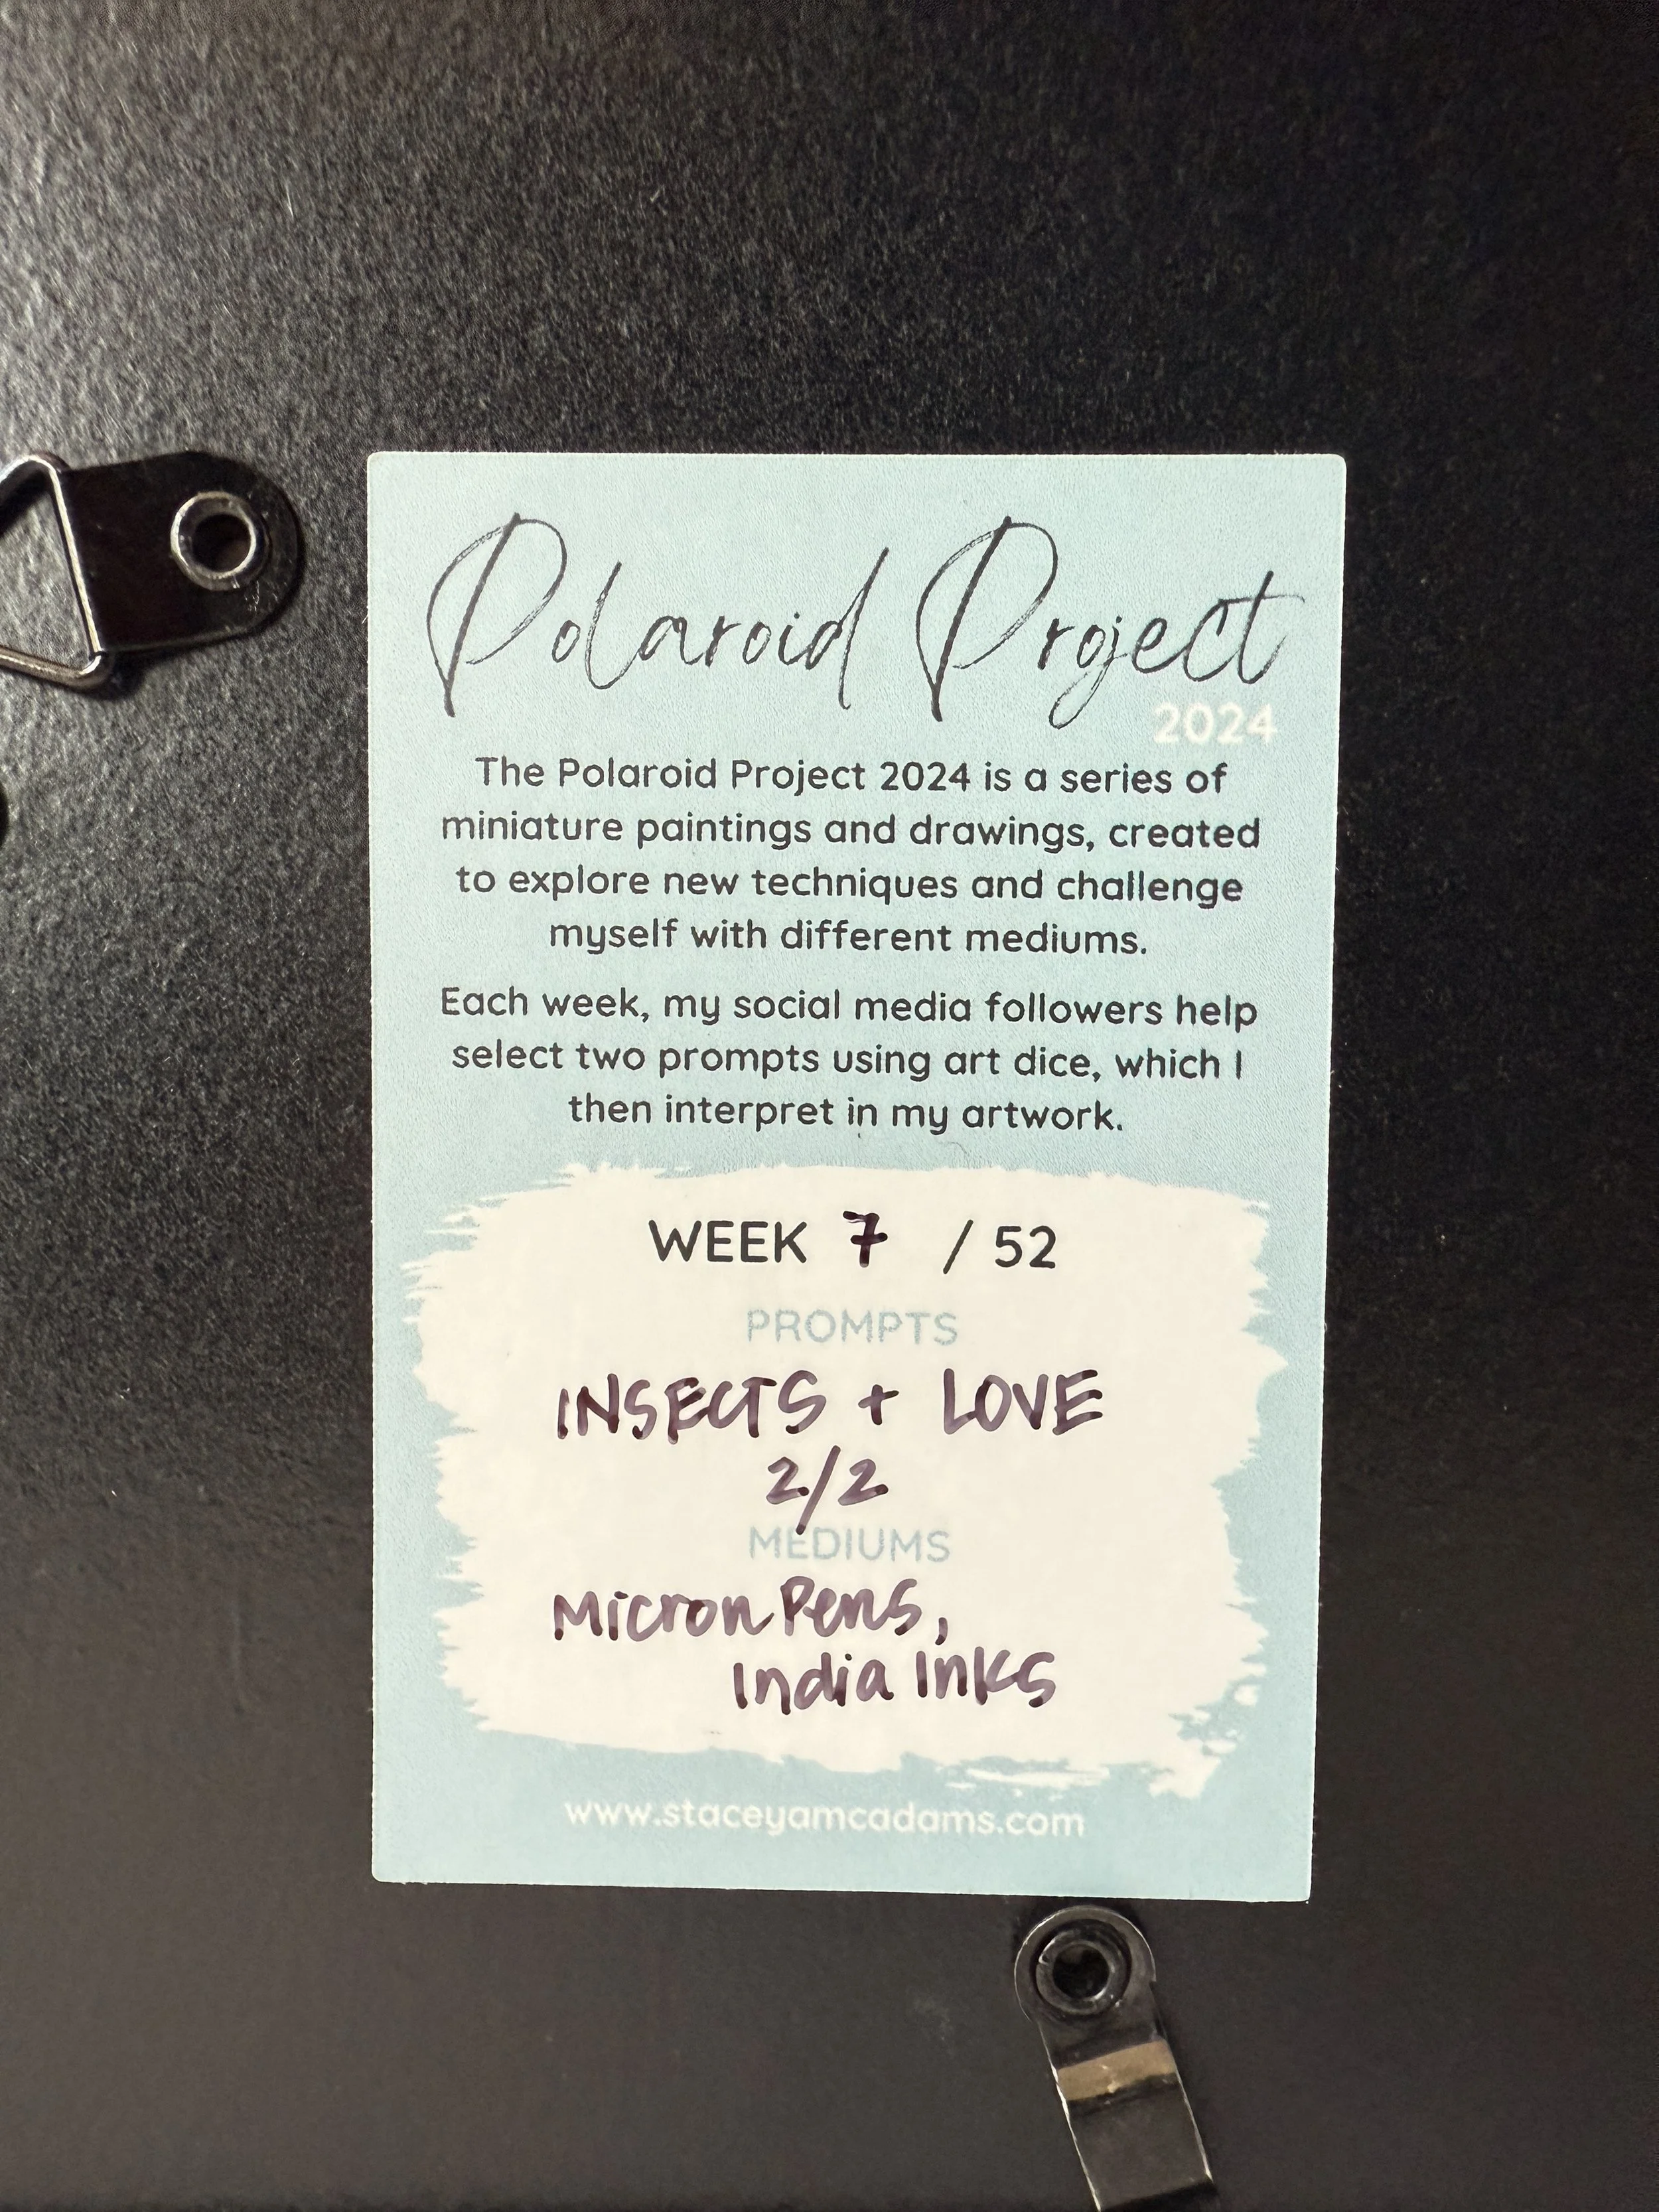 Polaroid Project
2024
The Polaroid Project 2024 is a series of
miniature paintings and drawings, created
to explore new techniques and challenge
myself with different mediums.
Each week, my social media followers help
select two prompts using art dice, which I
then interpret in my artwork.
WEEK 7 / 52
PROMPTS
INSECTS + LOVE
2/2
MEDIUMS
Micron Pens,
India Inks
www.staceyamcadams.com